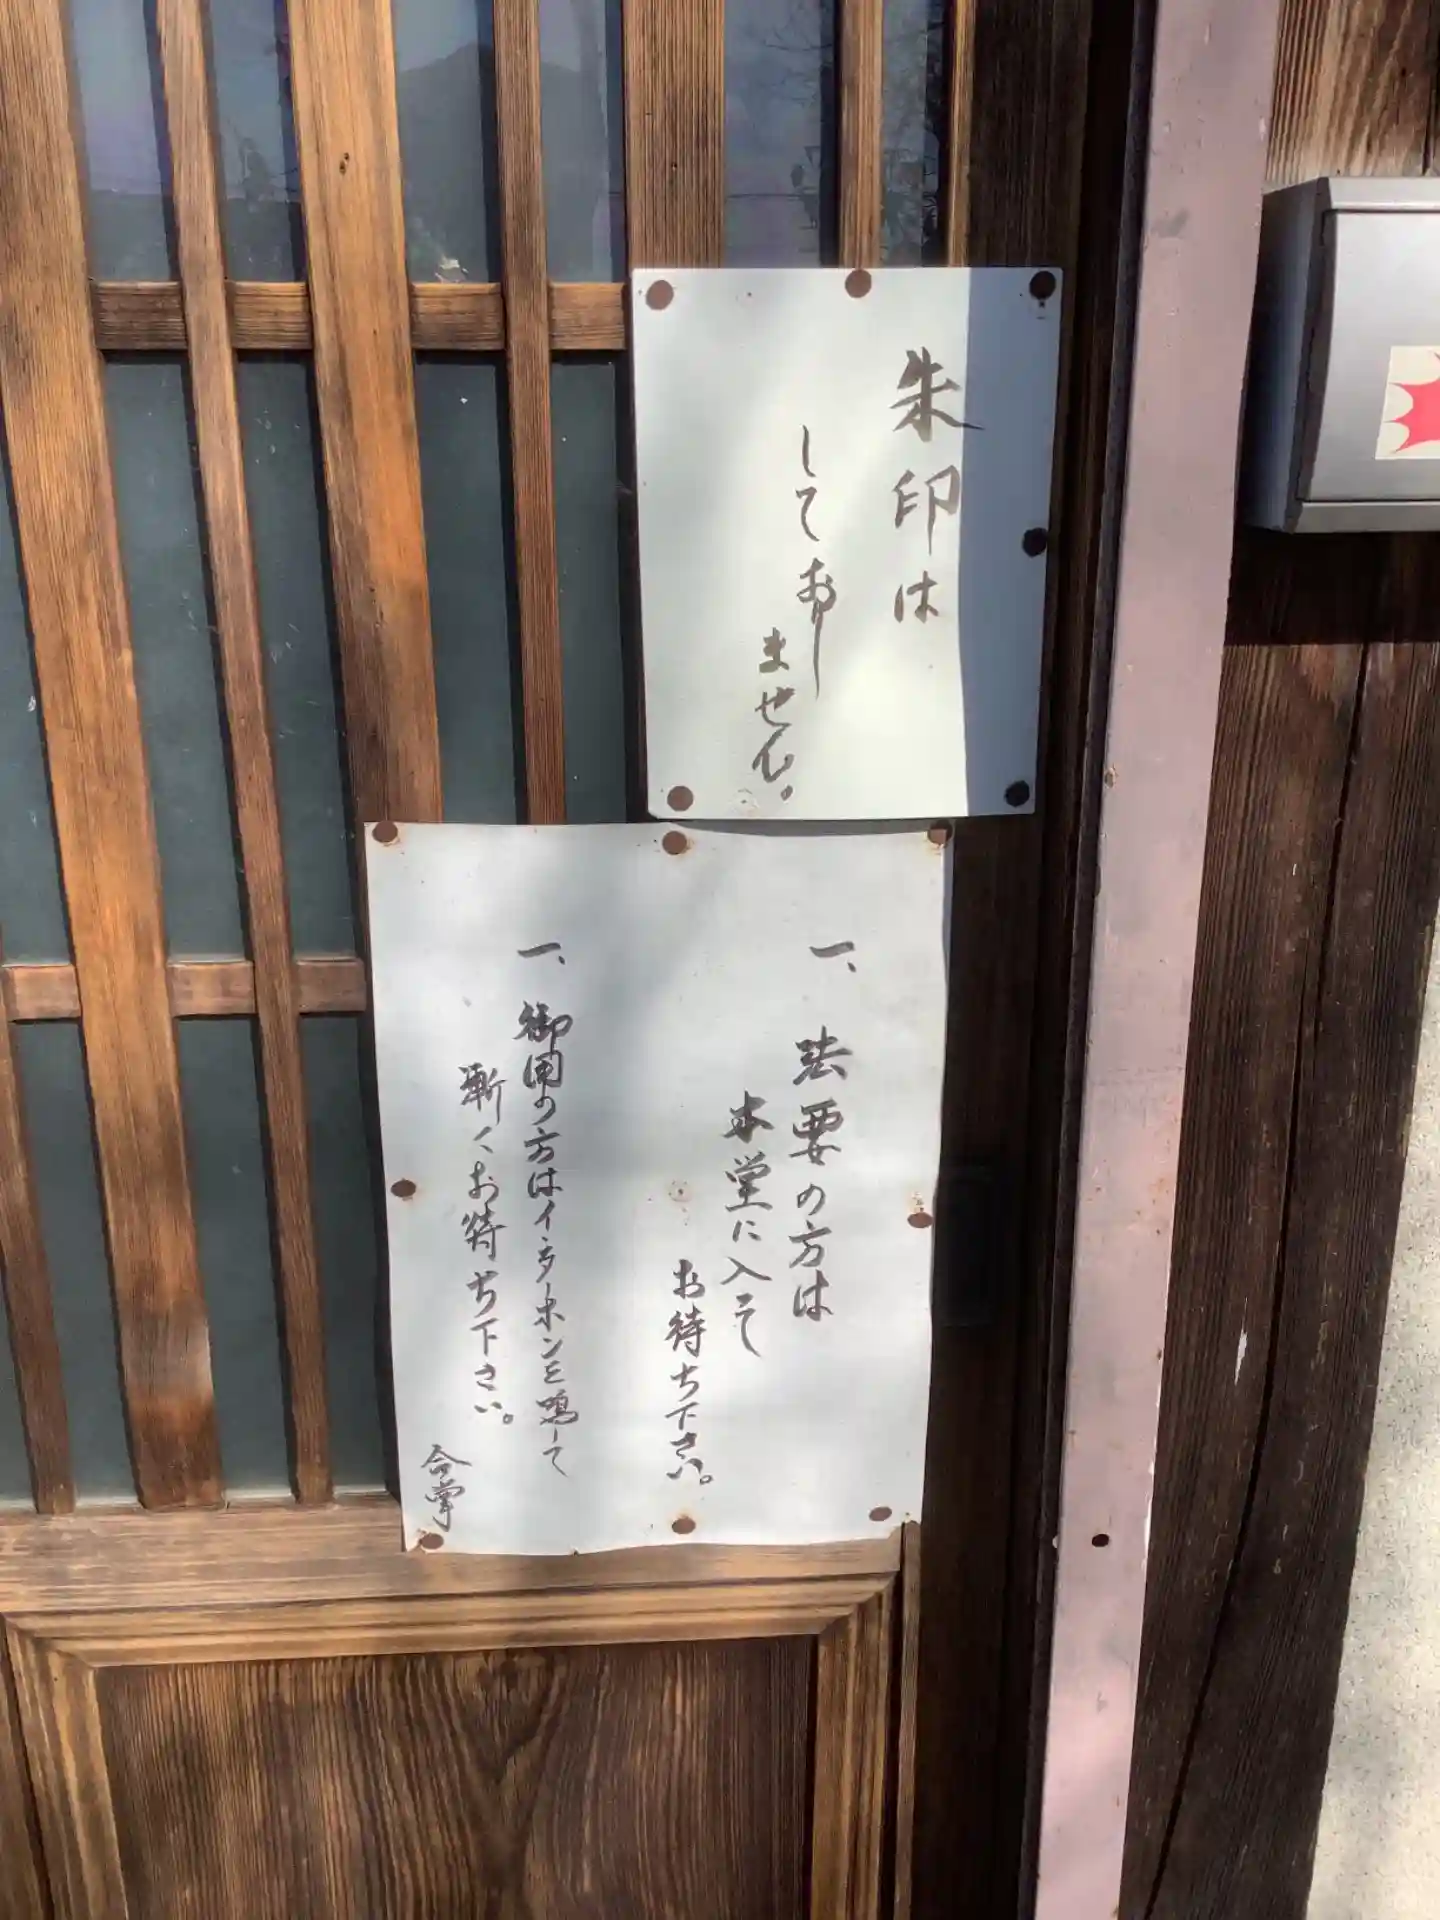 朱印は
しておりません。
一、法要の方は
本堂に入って
お待ち下さい。
一、御用の方はインターホンを鳴して
漸くお待ち下さい。
合掌